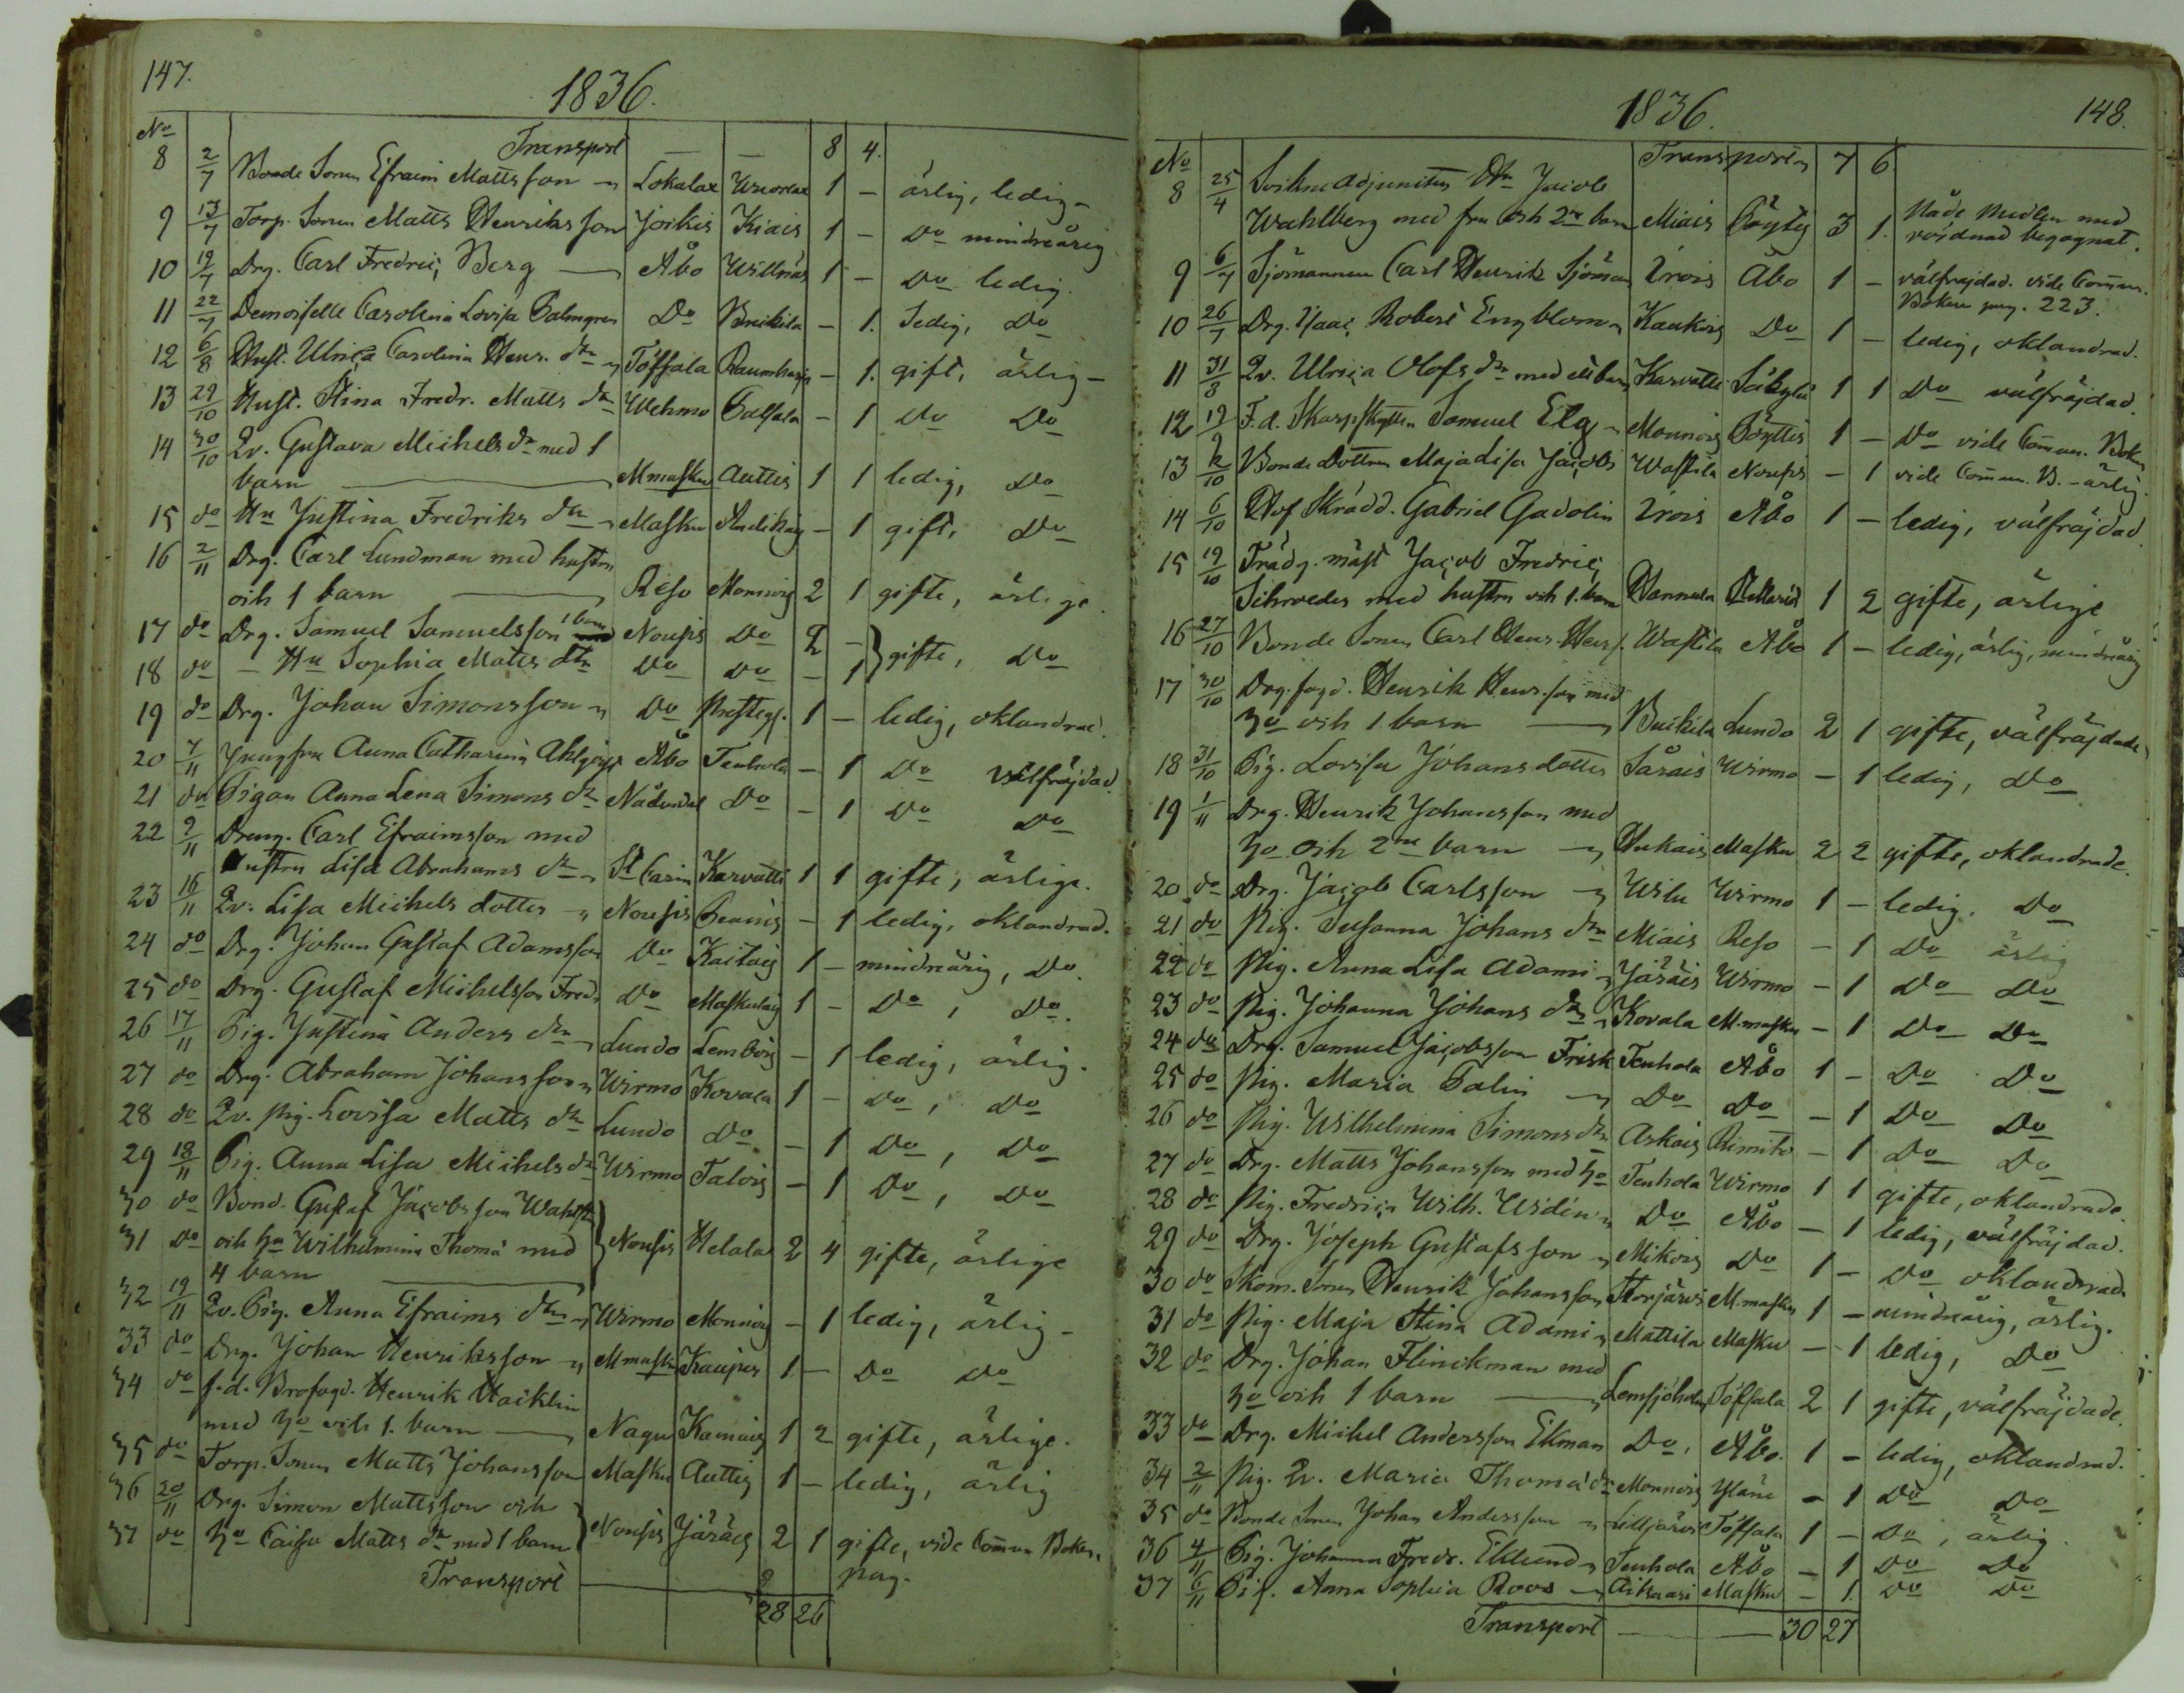 147.
1836.
No
Transport — — 8 4.
8 2/7 Bonde Sonen Efraim Mattsson Lokalax 1 – ärlig, ledig –
9 13/7 Torp. Sonen Matts Henriksson Joikis Kiais 1 – Do mindreårig
10 19/7 Drg. Carl Fredric Berg Åbo Willnäs 1 – Do ledig.
11 22/7 Demoiselle Carolina Lovisa Palmgren Do – 1. ledig, Do
12 6/8 Hust. Ulrica Carolina Henr. dr Töfsala – 1. gift, ärlig –
13 29/10 Hust. Stina Fredr. Matts dr Wehmo – 1 Do Do
14 30/10 Qv. Gustava Michels dr med 1
barn Mmasku Auttis 1 1 ledig, Do
15 do Hu Justina Fredriks dr Masku – 1 gift, Do
16 2/11 Drg. Carl Lundman med hustru
och 1 barn Reso Monnois 2 1 gifte, ärlige.
17 do Drg. Samuel Samuelsson 1 barn Nousis Do 2 – gifte, Do
18 do – Hu Sophia Matts dr Do Do – 1
19 do Drg. Johan Simonsson Do Presteg. 1 – ledig, oklandrad.
20 7/11 Jungfru Anna Catharina Åbo Tenhola – 1 Do välfräjdad.
21 do Pigan Anna Lena Simons dr Nådendal Do – 1 Do Do
22 9/11 Dreng. Carl Efraimsson med
hustru Lisa Abrahams dr St Carin Karvatti 1 1 gifte, ärlige.
23 16/11 Qv. Lisa Michels dotter Nousis – 1 ledig, oklandrad.
24 do Drg. Johan Gustaf Adamsson Do Kaitais 1 – mindreårig, Do.
25 do Drg. Gustaf Michelsson Fredr Do 1 – Do, Do.
26 17/11 Pig. Justina Anders dr Lundo Lembois – 1 ledig, ärlig.
27 do Drg. Abraham Johansson Wirmo Kovala 1 – Do, Do
28 do Qv. Pig. Lovisa Matts dr Lundo Do – 1 Do, Do
29 18/11 Pig. Anna Lisa Michels dr Wirmo Talois – 1 Do, Do
30 do Bond. Gustaf Jacobsson
31 do och hu Wilhelmina Thoma med Nousis Helala 2 4 gifte, ärlige
4 barn
32 19/11 Qv. Pig. Anna Efraims dr Wirmo Monnois – 1 ledig, ärlig –
33 do Drg. Johan Henriksson Mmasku 1 – Do Do
34 do f.d. Brofogd. Henrik Haiklin
med ho och 1. barn Nagu 1 2 gifte, ärlige.
35 do Torp. Sonen Matts Johansson Masku Auttis 1 – ledig, ärlig
36 20/11 Drg. Simon Mattsson och
37 do ho Caisa Matts dr med 1 barn Nousis Järäis 2 1 gifte, vide Comm Boken
pag.
Transport 28 26
1836. 148.
No Transport 7 6.
8 25/4 Sockne adjuncten Hr Jacob
Wahlberg med fru och 2ne barn Miais Pöytis 3 1. både Medlen med
vördnad begagnat.
9 6/7 Sjömannen Carl Henrik Sjöman Irois Åbo 1 – välfräjdad. vide Comm.
Boken pag. 223.
10 26/7 Drg. Isaac Robert Engblom Kaukois Do 1 – ledig, oklandrad.
11 31/8 Qv. Ulrica Olofs dr med ett barn Karvatti Säkylä 1 1 Do välfräjdad.
12 19/ F.d. Skarpskytten Samuel Elg Monnois Pöyttis 1 – Do vide Comm. Boken
13 2/10 Bonde Dottren Maja Lisa Jacobs Wastila Nousis – 1 vide Comm. B. – ärlig.
14 6/10 Hof Skrädd. Gabriel Gadolin Irois Åbo 1 – ledig, välfräjdad.
15 19/10 Trädg. mäst Jacob Fredric
Schroeder med hustru och 1. barn Hannula 1 2 gifte, ärlige
16 27/10 Bonde Sonen Carl Henr. Henrs. Wastila Åbo 1 – ledig, ärlig, mindreårig
17 30/10 Drg. fogd. Henrik Henr.son med
ho och 1 barn Lundo 2 1 gifte, välfräjdade
18 31/10 Pig. Lovisa Johansdotter Särais Wirmo – 1 ledig, Do
19 1/11 Drg. Henrik Johansson med
ho och 2ne barn Hukais Masku 2 2 gifte, oklandrade.
20 do Drg. Jacob Carlsson Wilu Wirmo 1 – ledig. Do
21 do Pig. Susanna Johans dr Miais Reso – 1 Do ärlig
22 do Pig. Anna Lisa Adami Järäis Wirmo – 1 Do Do
23 do Pig. Johanna Johans dr Kovala M.masku – 1 Do Do
24 do Drg. Samuel Jacobsson Frisk Tenhola Åbo 1 – Do Do
25 do Pig. Maria Palin Do Do – 1 Do Do
26 do Pig. Wilhelmina Simons dr Askais Rimito – 1 Do Do
27 do Drg. Matts Johansson med ho Tenhola Wirmo 1 1 gifte, oklandrade.
28 do Pig. Fredrica Wilh. Widén Do Åbo – 1 ledig, välfräjdad.
29 do Drg. Joseph Gustafsson Mikois Do 1 – Do oklandrad.
30 do Skom. Sonen Henrik Johansson Storjärvi M.masku 1 – mindreårig, ärlig.
31 do Pig. Maja Stina Adami Mattila Masku – 1 ledig, Do
32 do Drg. Johan Flinckman med
ho och 1 barn Töfsala 2 1 gifte, välfräjdade.
33 do Drg. Michel Andersson Ekman Do. Åbo. 1 – ledig, oklandrad.
34 2/11 Pig. Qv. Maria Thoma dr Monnois Yläne – 1 Do Do
35 do Bonde Sonen Johan Andersson Lilljärvi Töfsala 1 – Do, ärlig.
36 4/11 Pig. Johanna Fredr. Eklund Tenhola Åbo – 1 Do Do
37 6/11 Pig. Anna Sophia Roos Masku – 1. Do Do
Transport 30 27